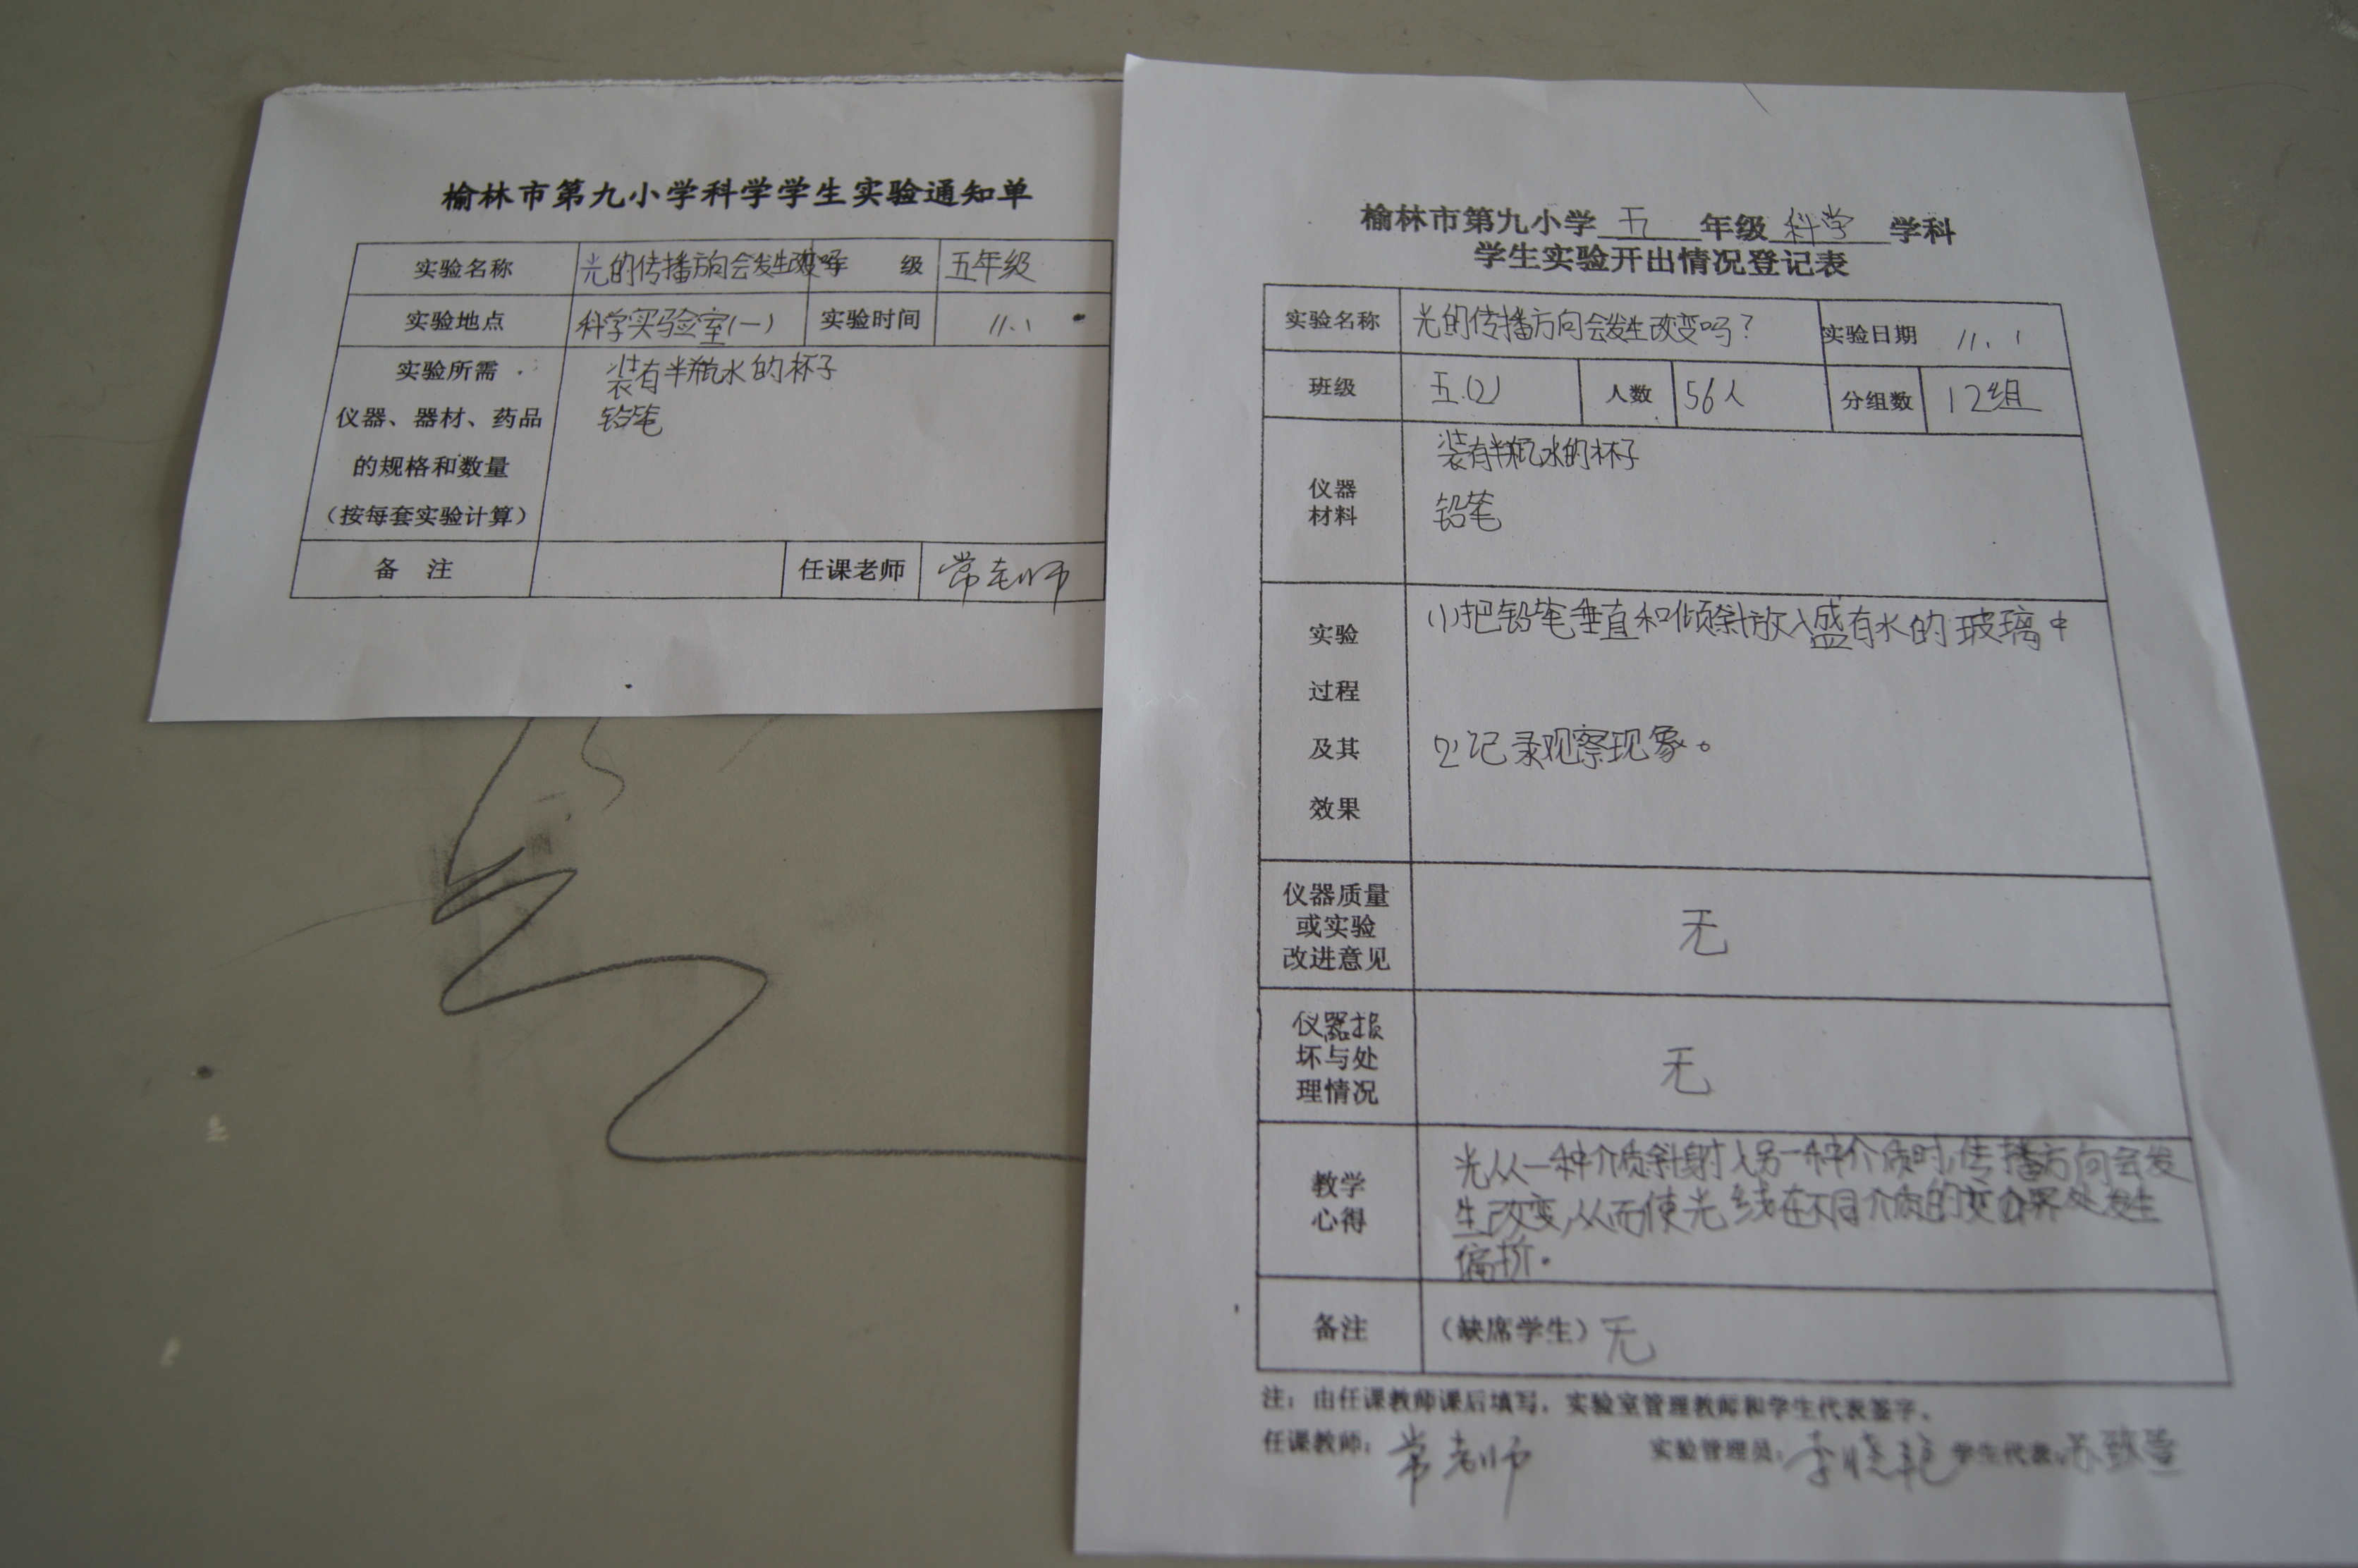 榆林市第九小学科学学生实验通知单
实验名称 光的传播方向会发生改变吗 年 级 五年级
实验地点 科学实验室(一) 实验时间 11.1
实验所需
仪器、器材、药品
的规格和数量
(按每套实验计算)
装有半瓶水的杯子
铅笔
备 注 任课老师 常老师
榆林市第九小学 五 年级 科学 学科
学生实验开出情况登记表
实验名称 光的传播方向会发生改变吗? 实验日期 11.1
班级 五.(2) 人数 56人 分组数 12组
仪器
材料
装有半瓶水的杯子
铅笔
实验
过程
及其
效果
(1)把铅笔垂直和倾斜放入盛有水的玻璃中
(2)记录观察现象。
仪器质量
或实验
改进意见
无
仪器损
坏与处
理情况
无
教学
心得
光从一种介质斜射入另一种介质时,传播方向会发
生改变,从而使光线在不同介质的交界处发生
偏折。
备注 (缺席学生) 无
注:由任课教师课后填写,实验室管理教师和学生代表签字。
任课教师: 常老师 实验管理员: 李晓艳 学生代表: